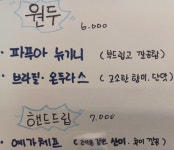 원두
6.000
• 파푸아 뉴기니 (부드럽고 깔끔함)
• 브라질·온두라스 (고소한 향미, 단맛)
핸드드립 7.000
예가체프 산미